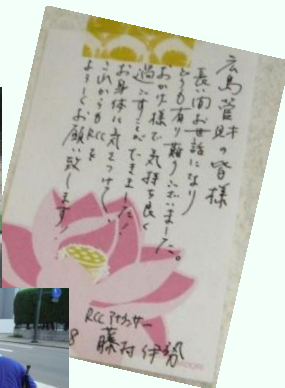 広島菅財の皆様
長い間お世話になり
どうも有り難うございました。
おかげ様で気持ち良く
過ごすことができました!
お身体に気をつけて、
これからもRCCを
よろしくお願い致します!
RCCアナウンサー
藤村伊勢